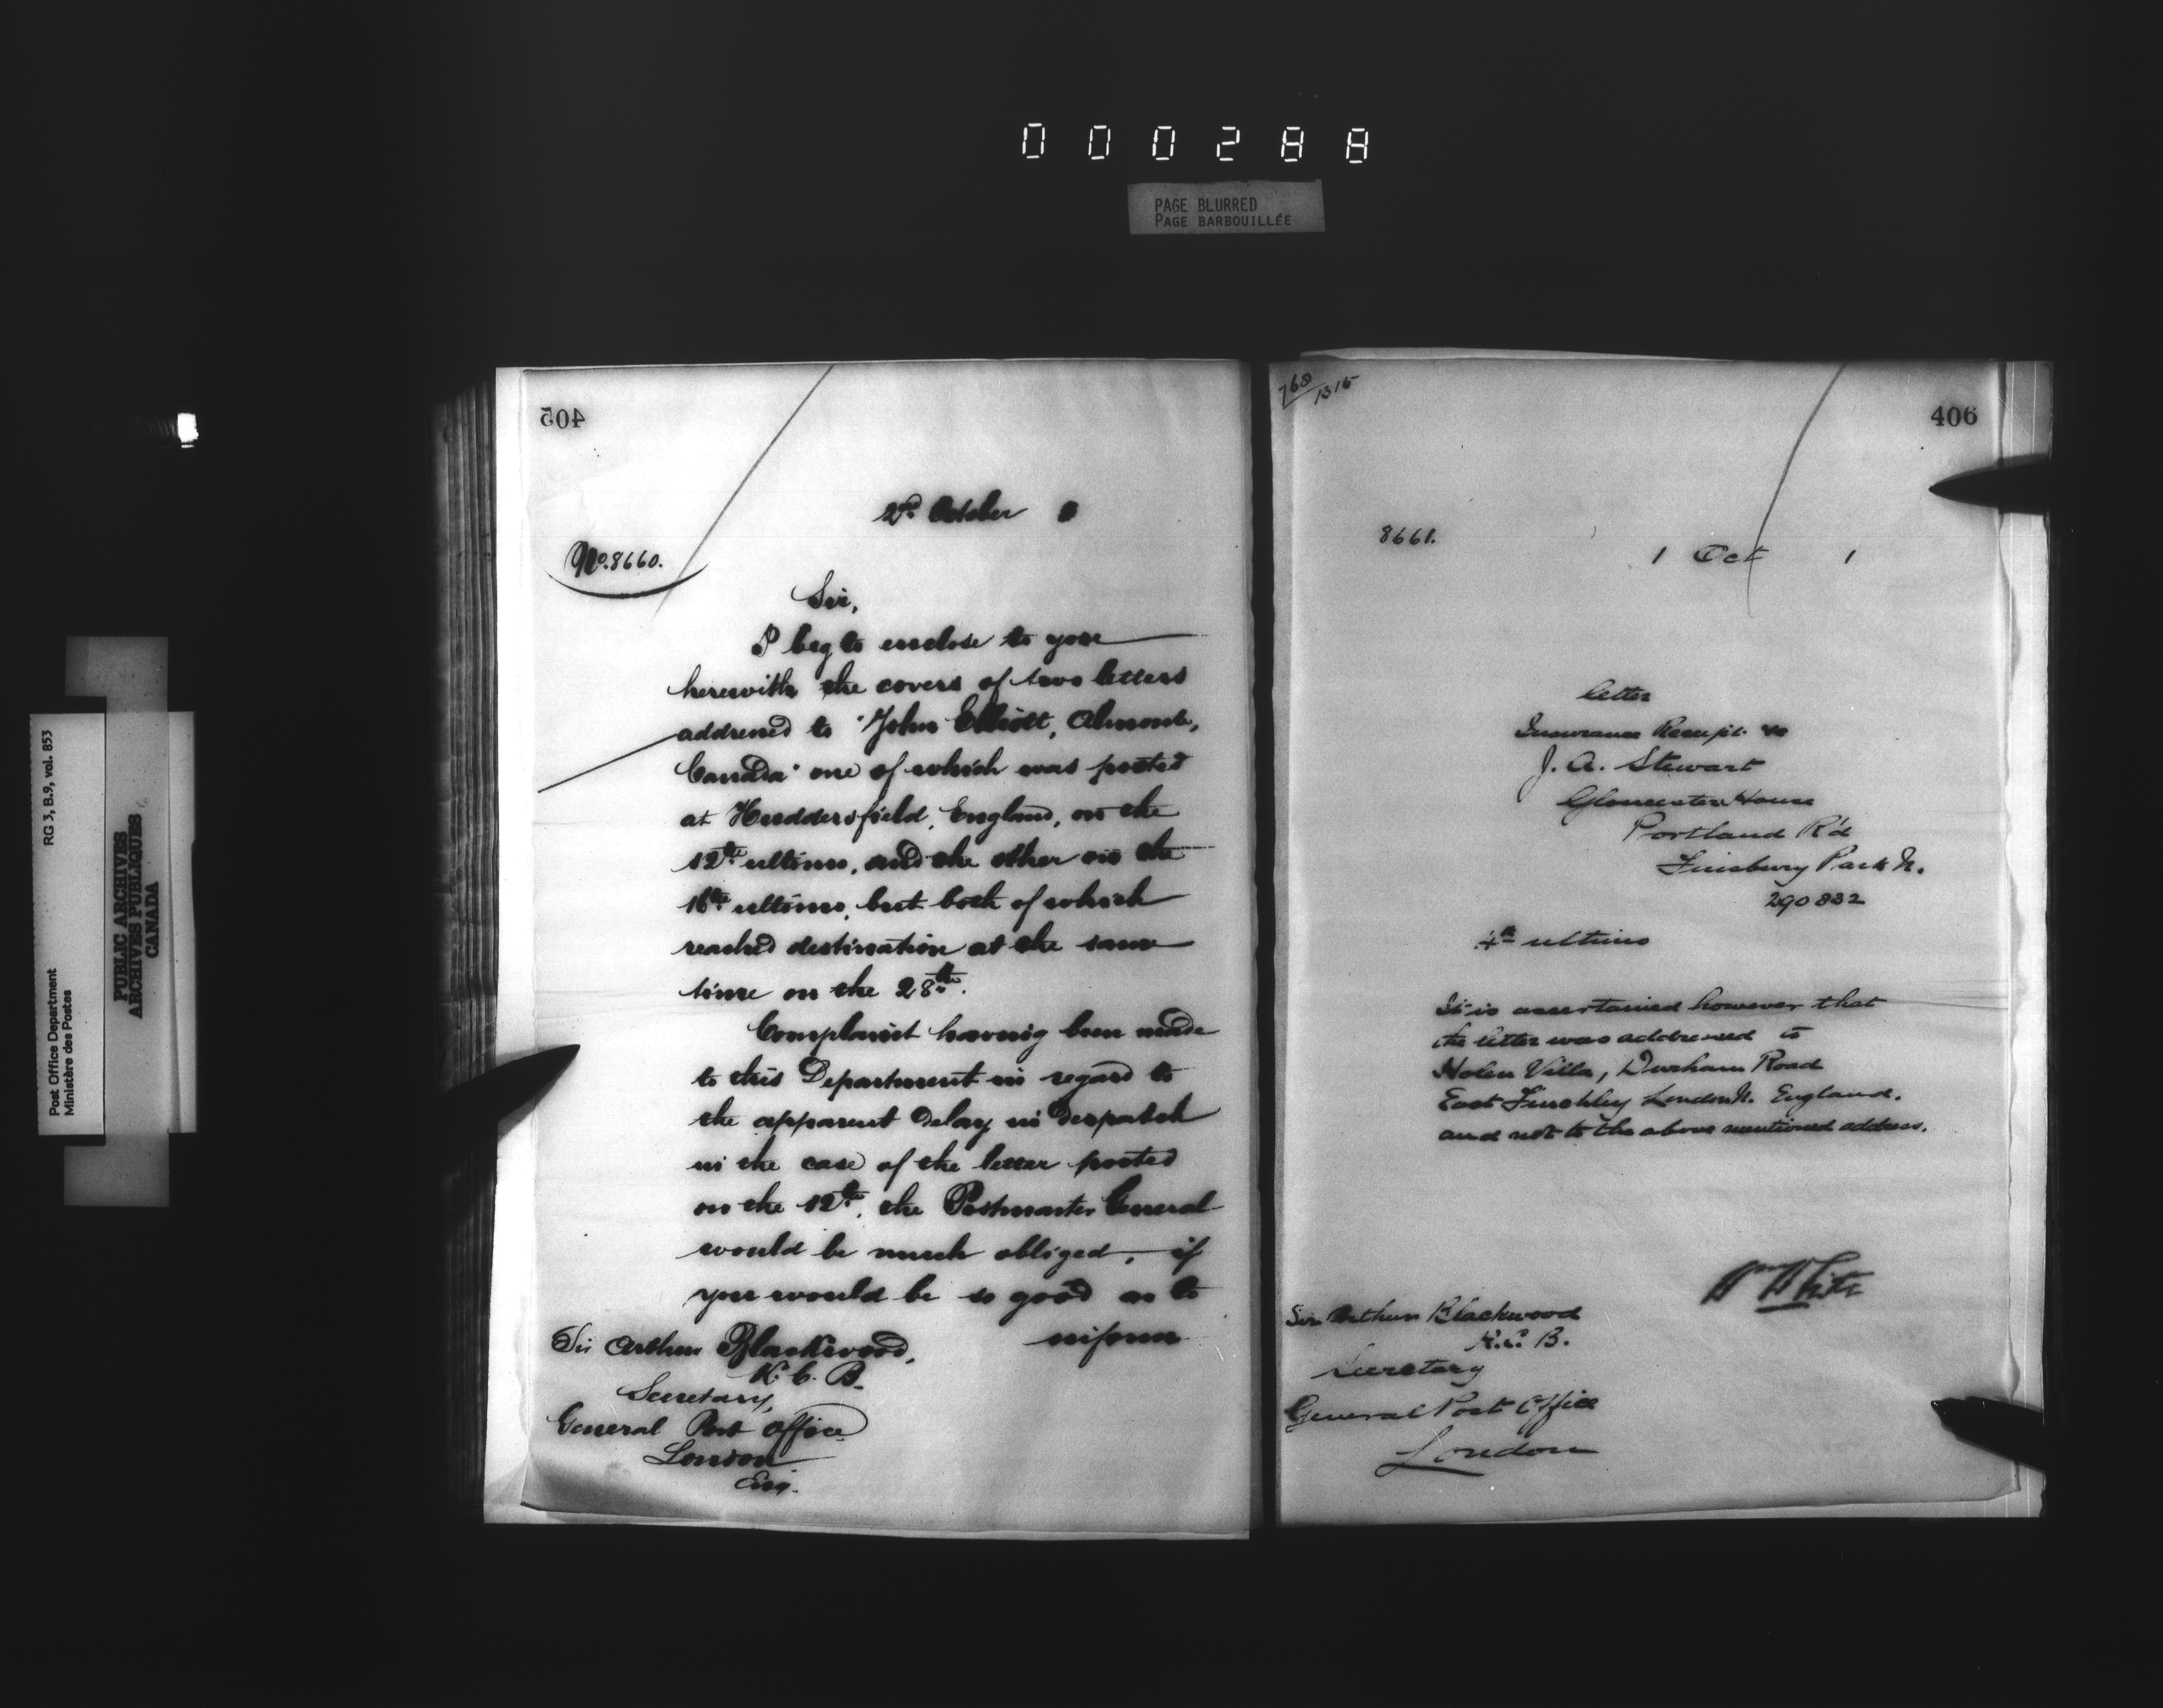 000288
PAGE BLURRED
PAGE BARBOUILLÉE
Post Office Department
Ministère des Postes
RG 3, B.9, vol. 853
PUBLIC ARCHIVES
ARCHIVES PUBLIQUES
CANADA
405
2nd October
No. 8660.
Sir,
I beg to enclose to you
herewith the covers of two letters
addressed to "John Elliott, Almonte,
Canada" one of which was posted
at Huddersfield, England, on the
12th ultimo, and the other on the
16th ultimo, but both of which
reached destination at the same
time on the 28th.
Complaint having been made
to this Department in regard to
the apparent delay in despatch
in the case of the letter posted
on the 12th, the Postmaster General
would be much obliged, if
you would be so good as to
inform
Sir Arthur Blackwood,
K. C. B.
Secretary,
General Post Office
London
Eng.
768/1315
406
8661.
1 Oct 1
letter
Insurance Receipt
J. A. Stewart
Gloucester House
Portland R'd
Finsbury Park N.
290832
4th ultimo
It is ascertained however that
the letter was addressed to
Villa, Durham Road
East Finchley London N. England.
and not to the above mentioned address.
Wm White
Sir Arthur Blackwood
K.C.B.
Secretary
General Post Office
London